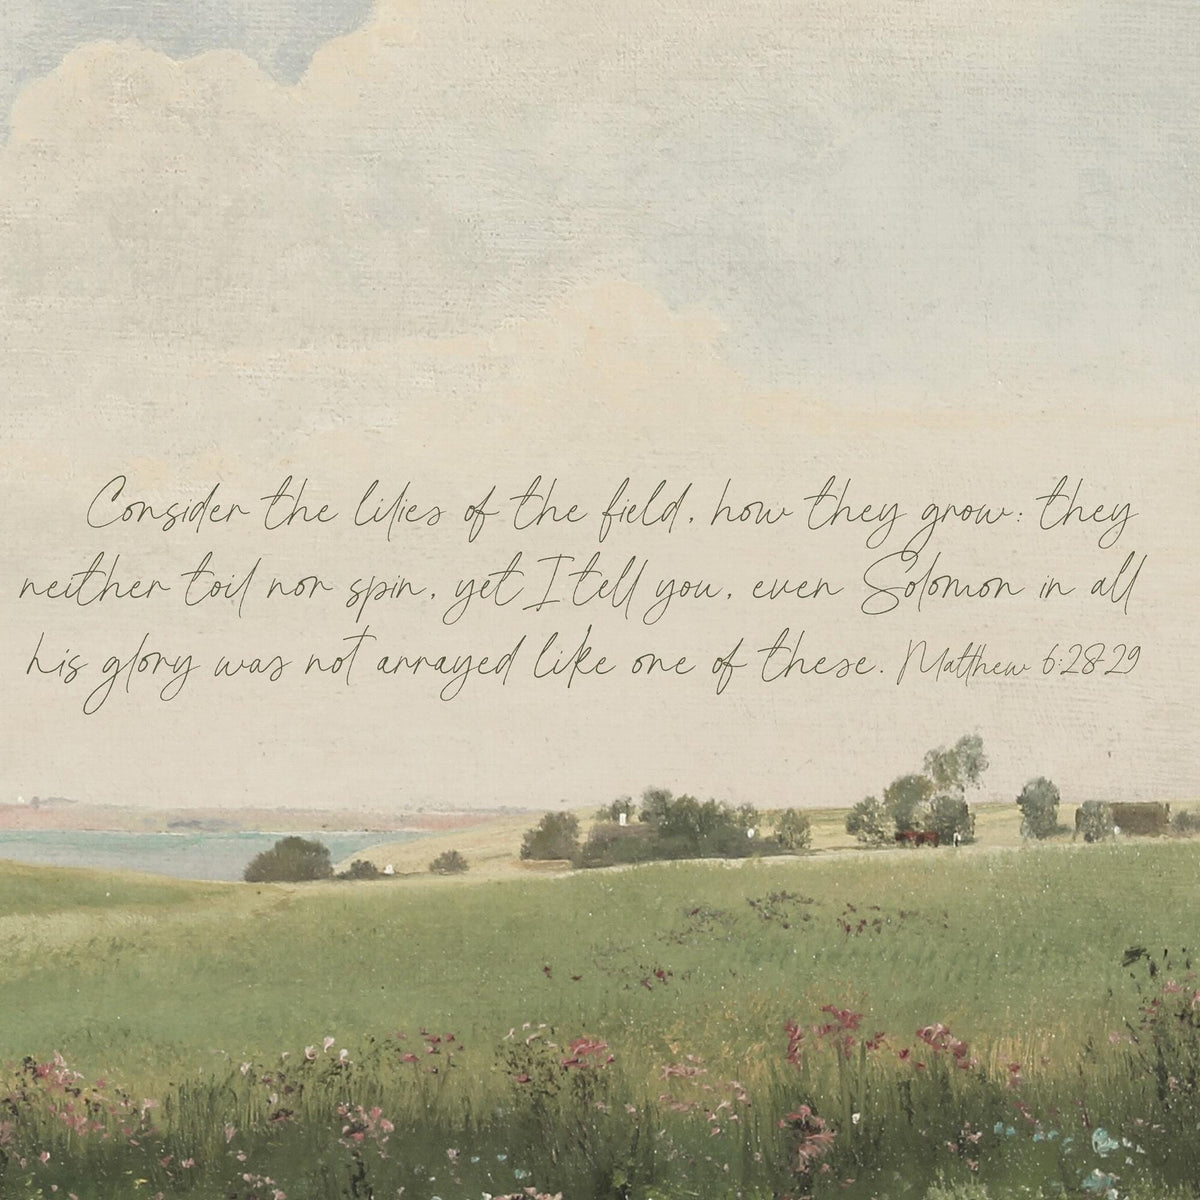 Consider the lilies of the field, how they grow: they
neither toil nor spin, yet I tell you, even Solomon in all
his glory was not arrayed like one of these. Matthew 6:28-29